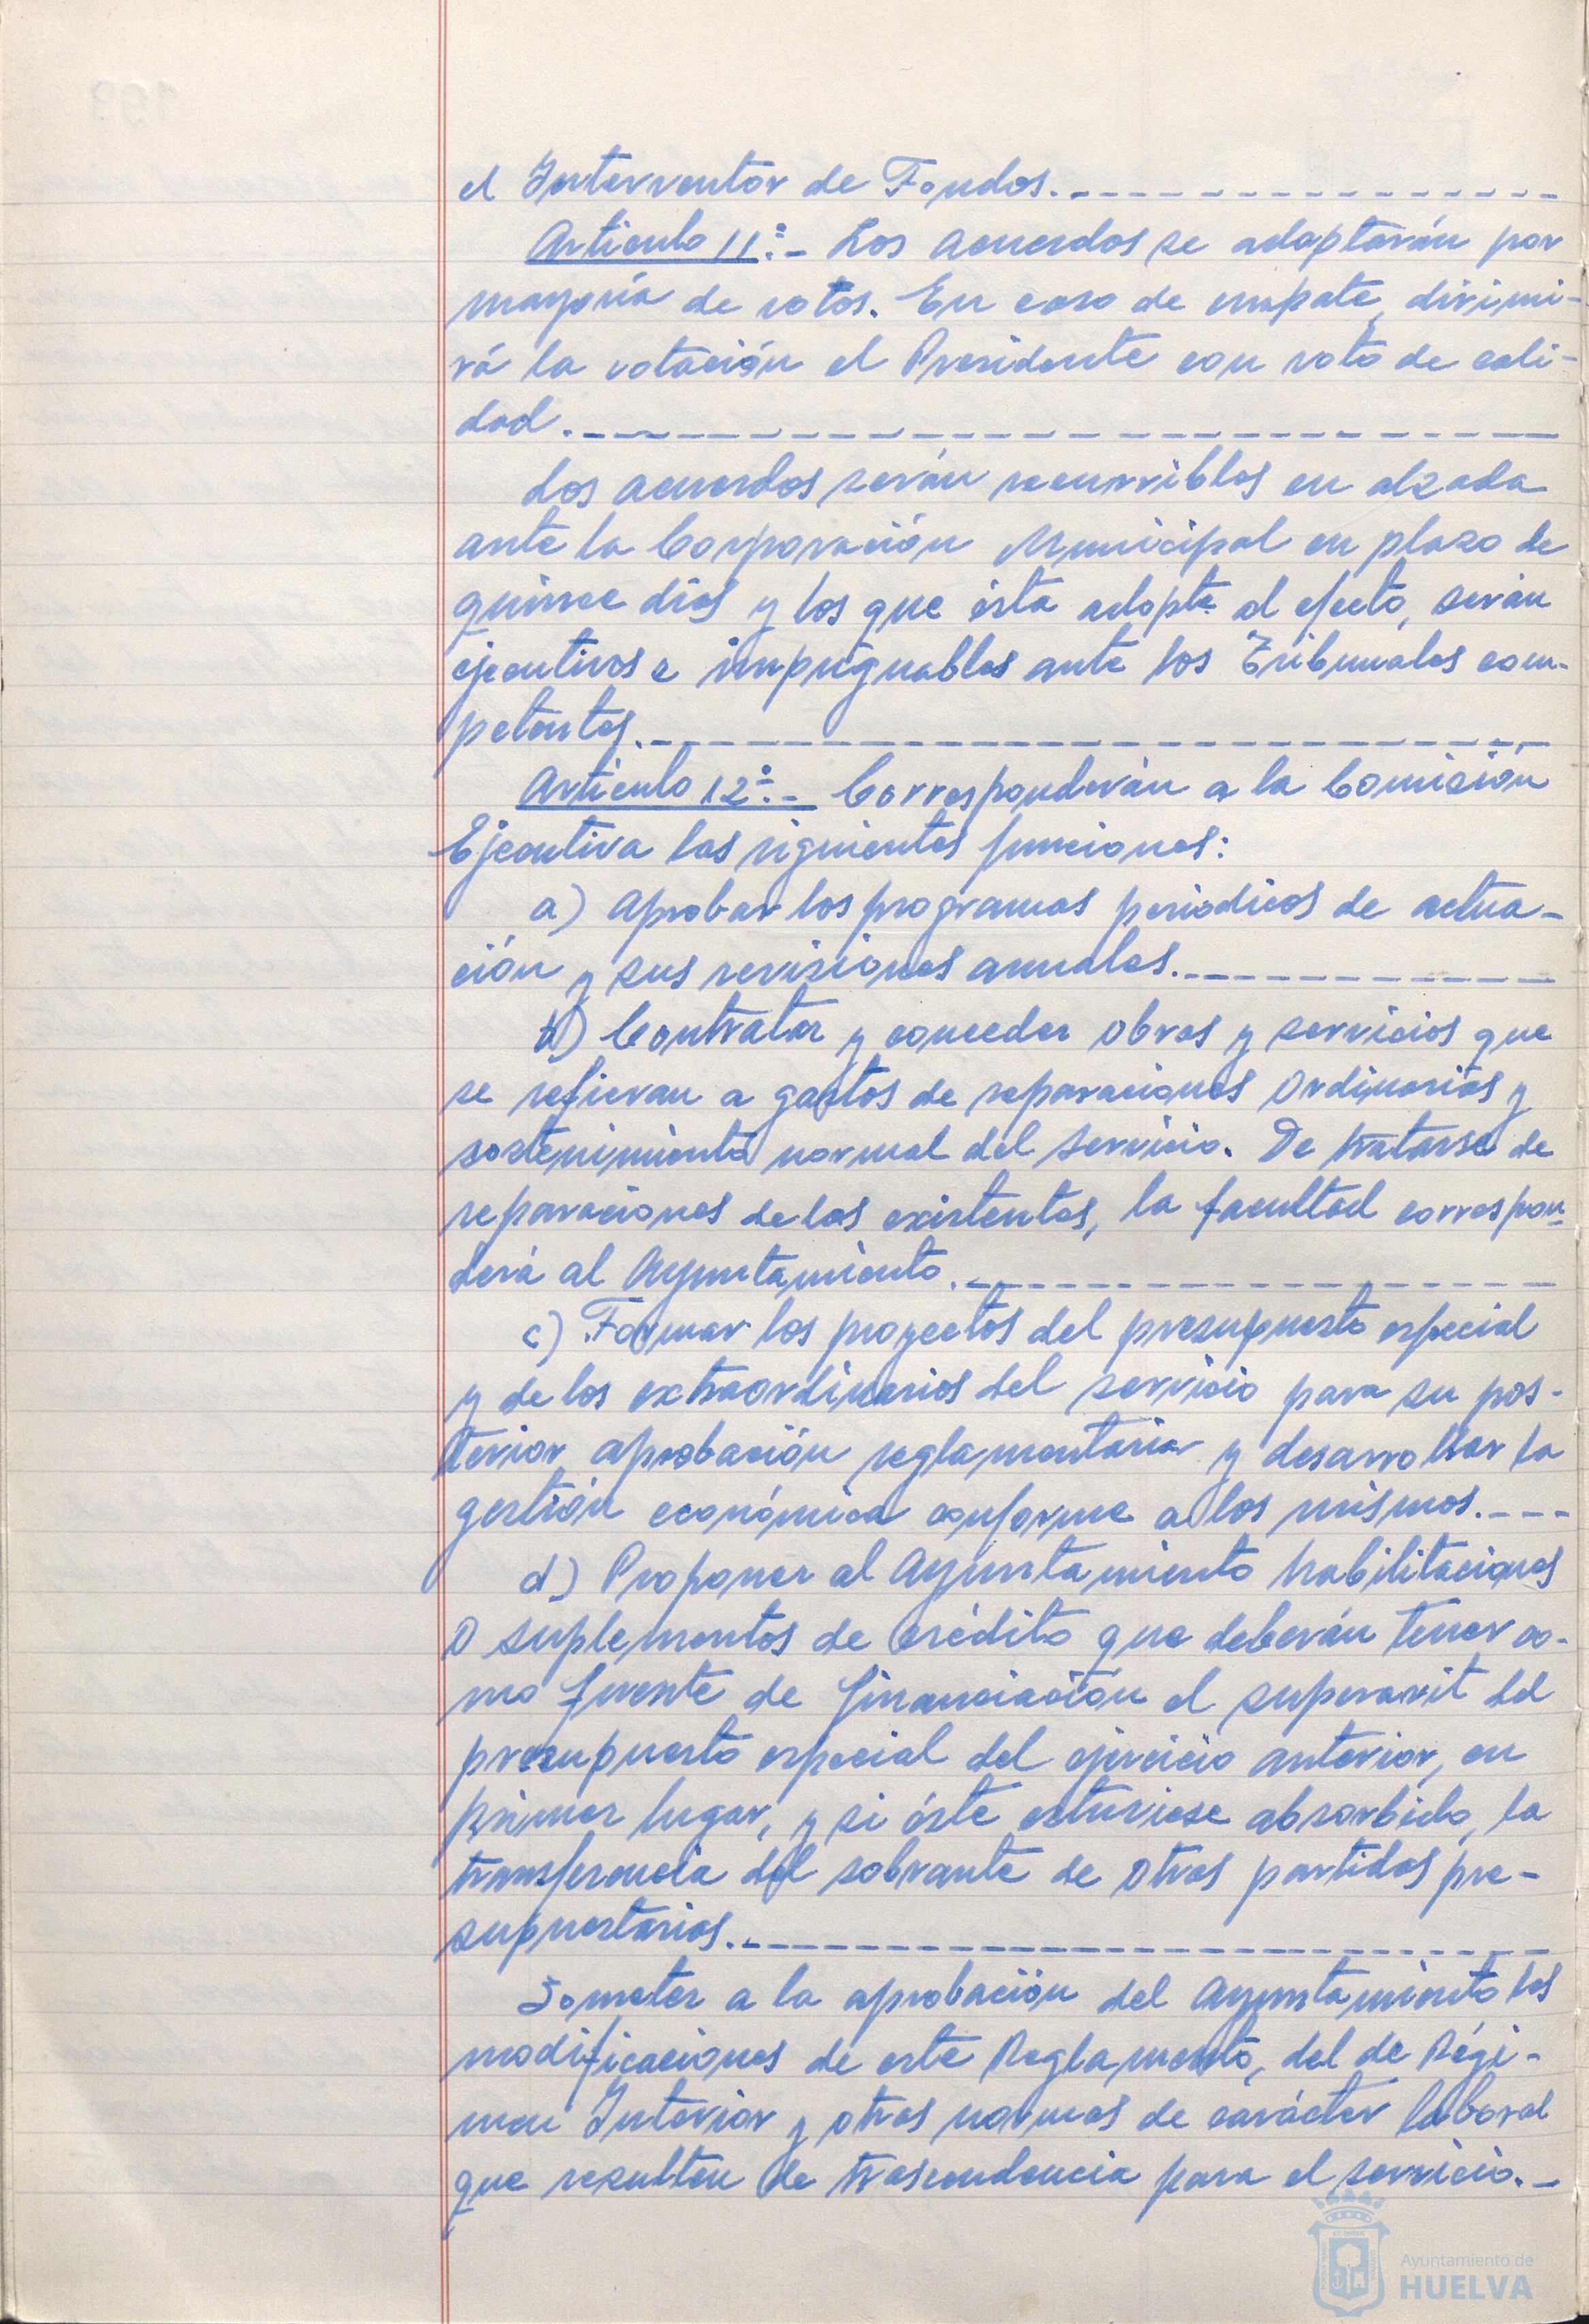 el Interventor de Fondos.----------------
Artículo 11º.- Los acuerdos se adoptarán por
mayoría de votos. En caso de empate, dirimi-
rá la votación el Presidente con voto de cali-
dad.----------------------
Los acuerdos serán recurribles en alzada
ante la Corporación Municipal en plazo de
quince días y los que ésta adopte al efecto, serán
ejecutivos e impugnables ante los Tribunales com-
petentes.----------------------
Artículo 12º.- Corresponderán a la Comisión
Ejecutiva las siguientes funciones:
a) Aprobar los programas periodicos de actua-
ción y sus revisiones anuales.----------
b) Contratar y conceder obras y servicios que
se refieran a gastos de reparaciones ordinarias y
sostenimiento normal del servicio. De tratarse de
reparaciones de las existentes, la facultad correspon-
derá al Ayuntamiento.----------------
c) Formar los proyectos del presupuesto especial
y de los extraordinarios del servicio para su pos-
terior aprobación reglamentaria y desarrollar la
gestión económica conforme a los mismos.----
d) Proponer al Ayuntamiento habilitaciones
o suplementos de crédito que deberán tener co-
mo fuente de financiación el superavit del
presupuesto especial del ejercicio anterior, en
primer lugar, y si éste estuviese absorbido, la
transferencia del sobrante de otras partidas pre-
supuestarias.----------------------
Someter a la aprobación del Ayuntamiento las
modificaciones de este Reglamento, del de Régi-
men Interior y otras normas de carácter laboral
que resulten de trascendencia para el servicio.-
Ayuntamiento de
HUELVA